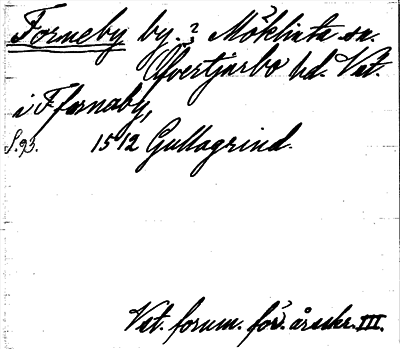 Forneby by. ? Möklinta sn.
Övertjurbo hd. Vst.
i Ffornaby,
S. 93. 1512 Gullagrind.
Vst. fornm. för. årsskr. III.